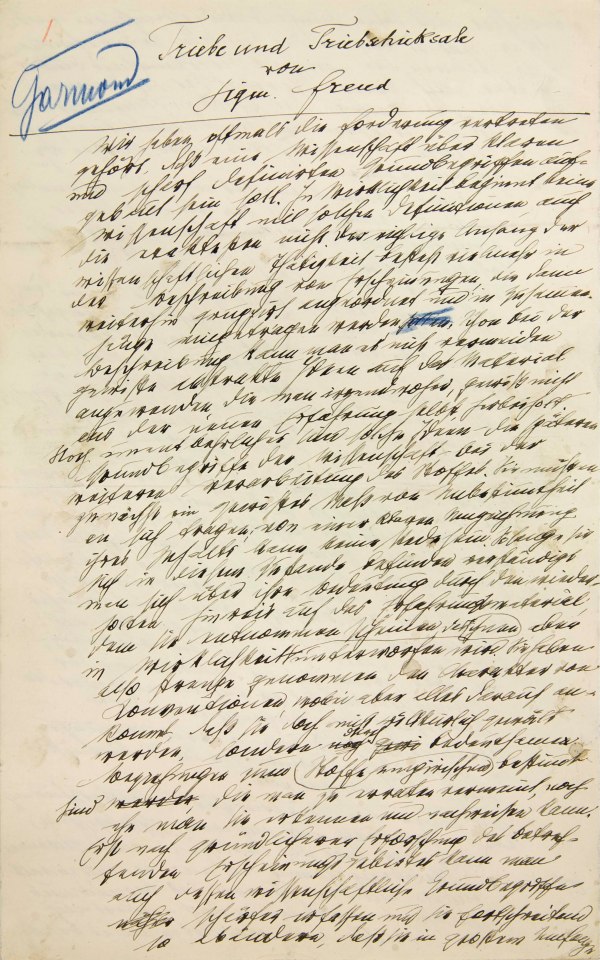 1.
Garmond
Triebe und Triebschicksale
von
Sigm. Freud
Wir haben oftmals die Forderung vertreten
gehört, daß eine Wissenschaft über klaren
und scharf definirten Grundbegriffen auf-
gebaut sein soll. In Wirklichkeit beginnt keine
Wissenschaft mit solchen Definitionen, auch
die exaktesten nicht. Der richtige Anfang der
wissenschaftlichen Thätigkeit besteht vielmehr in
der Beschreibung von Erscheinungen, die dann
weiterhin gruppirt, angeordnet und in Zusammen-
hänge eingetragen werden. Schon bei der
Beschreibung kann man es nicht vermeiden
gewisse abstrakte Ideen auf das Material
anzuwenden, die man irgendwoher, gewiß nicht
aus der neuen Erfahrung selbst, herbeiholt.
Noch unentbehrlicher sind solche Ideen – die späteren
Grundbegriffe der Wissenschaft – bei der
weiteren Verarbeitung des Stoffes. Sie müssen
zunächst ein gewisses Maß von Unbestimtheit
an sich tragen; von einer klaren Umzeichnung
ihres Inhalts kann keine Rede sein. Solange sie
sich in diesem Zustande befinden, verständigt
man sich über ihre Bedeutung durch den wieder-
holten Hinweis auf das Erfahrungsmaterial,
dem sie entnommen scheinen, aber
in Wirklichkeit unterworfen wird. Sie haben
also strenge genommen den Charakter von
Konventionen, wobei aber alles darauf an-
kommt, daß sie doch nicht willkürlich gewählt
werden, sondern durch bedeutsame
Beziehungen zum Stoffe empirischen bestimt
sind werden die man zu erraten vermeint, noch
ehe man sie erkennen und nachweisen kann.
Erst nach gründlicherer Erforschung des betref-
fenden Erscheinungsgebietes kann man
auch dessen wissenschaftliche Grundbegriffe
schärfer erfassen und sie fortschreitend
so abändern, daß sie in großem Umfange